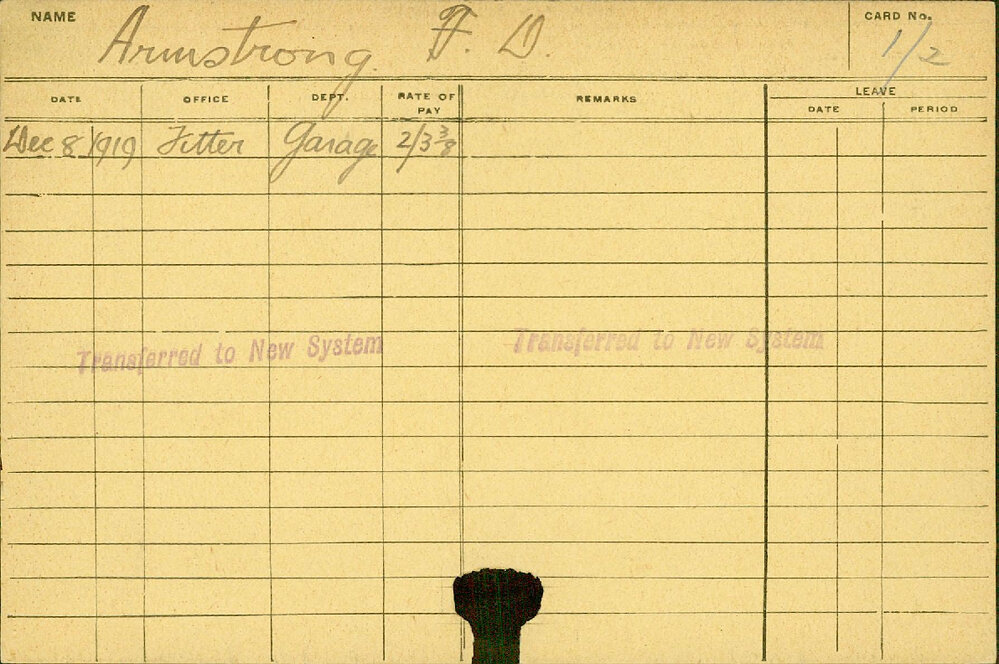 NAME Armstrong. F. D. CARD No. 1/2
DATE OFFICE DEPT. RATE OF PAY REMARKS LEAVE
DATE PERIOD
Dec 8 1919 Fitter Garage 2/3 3/8
Transferred to New System Transferred to New System